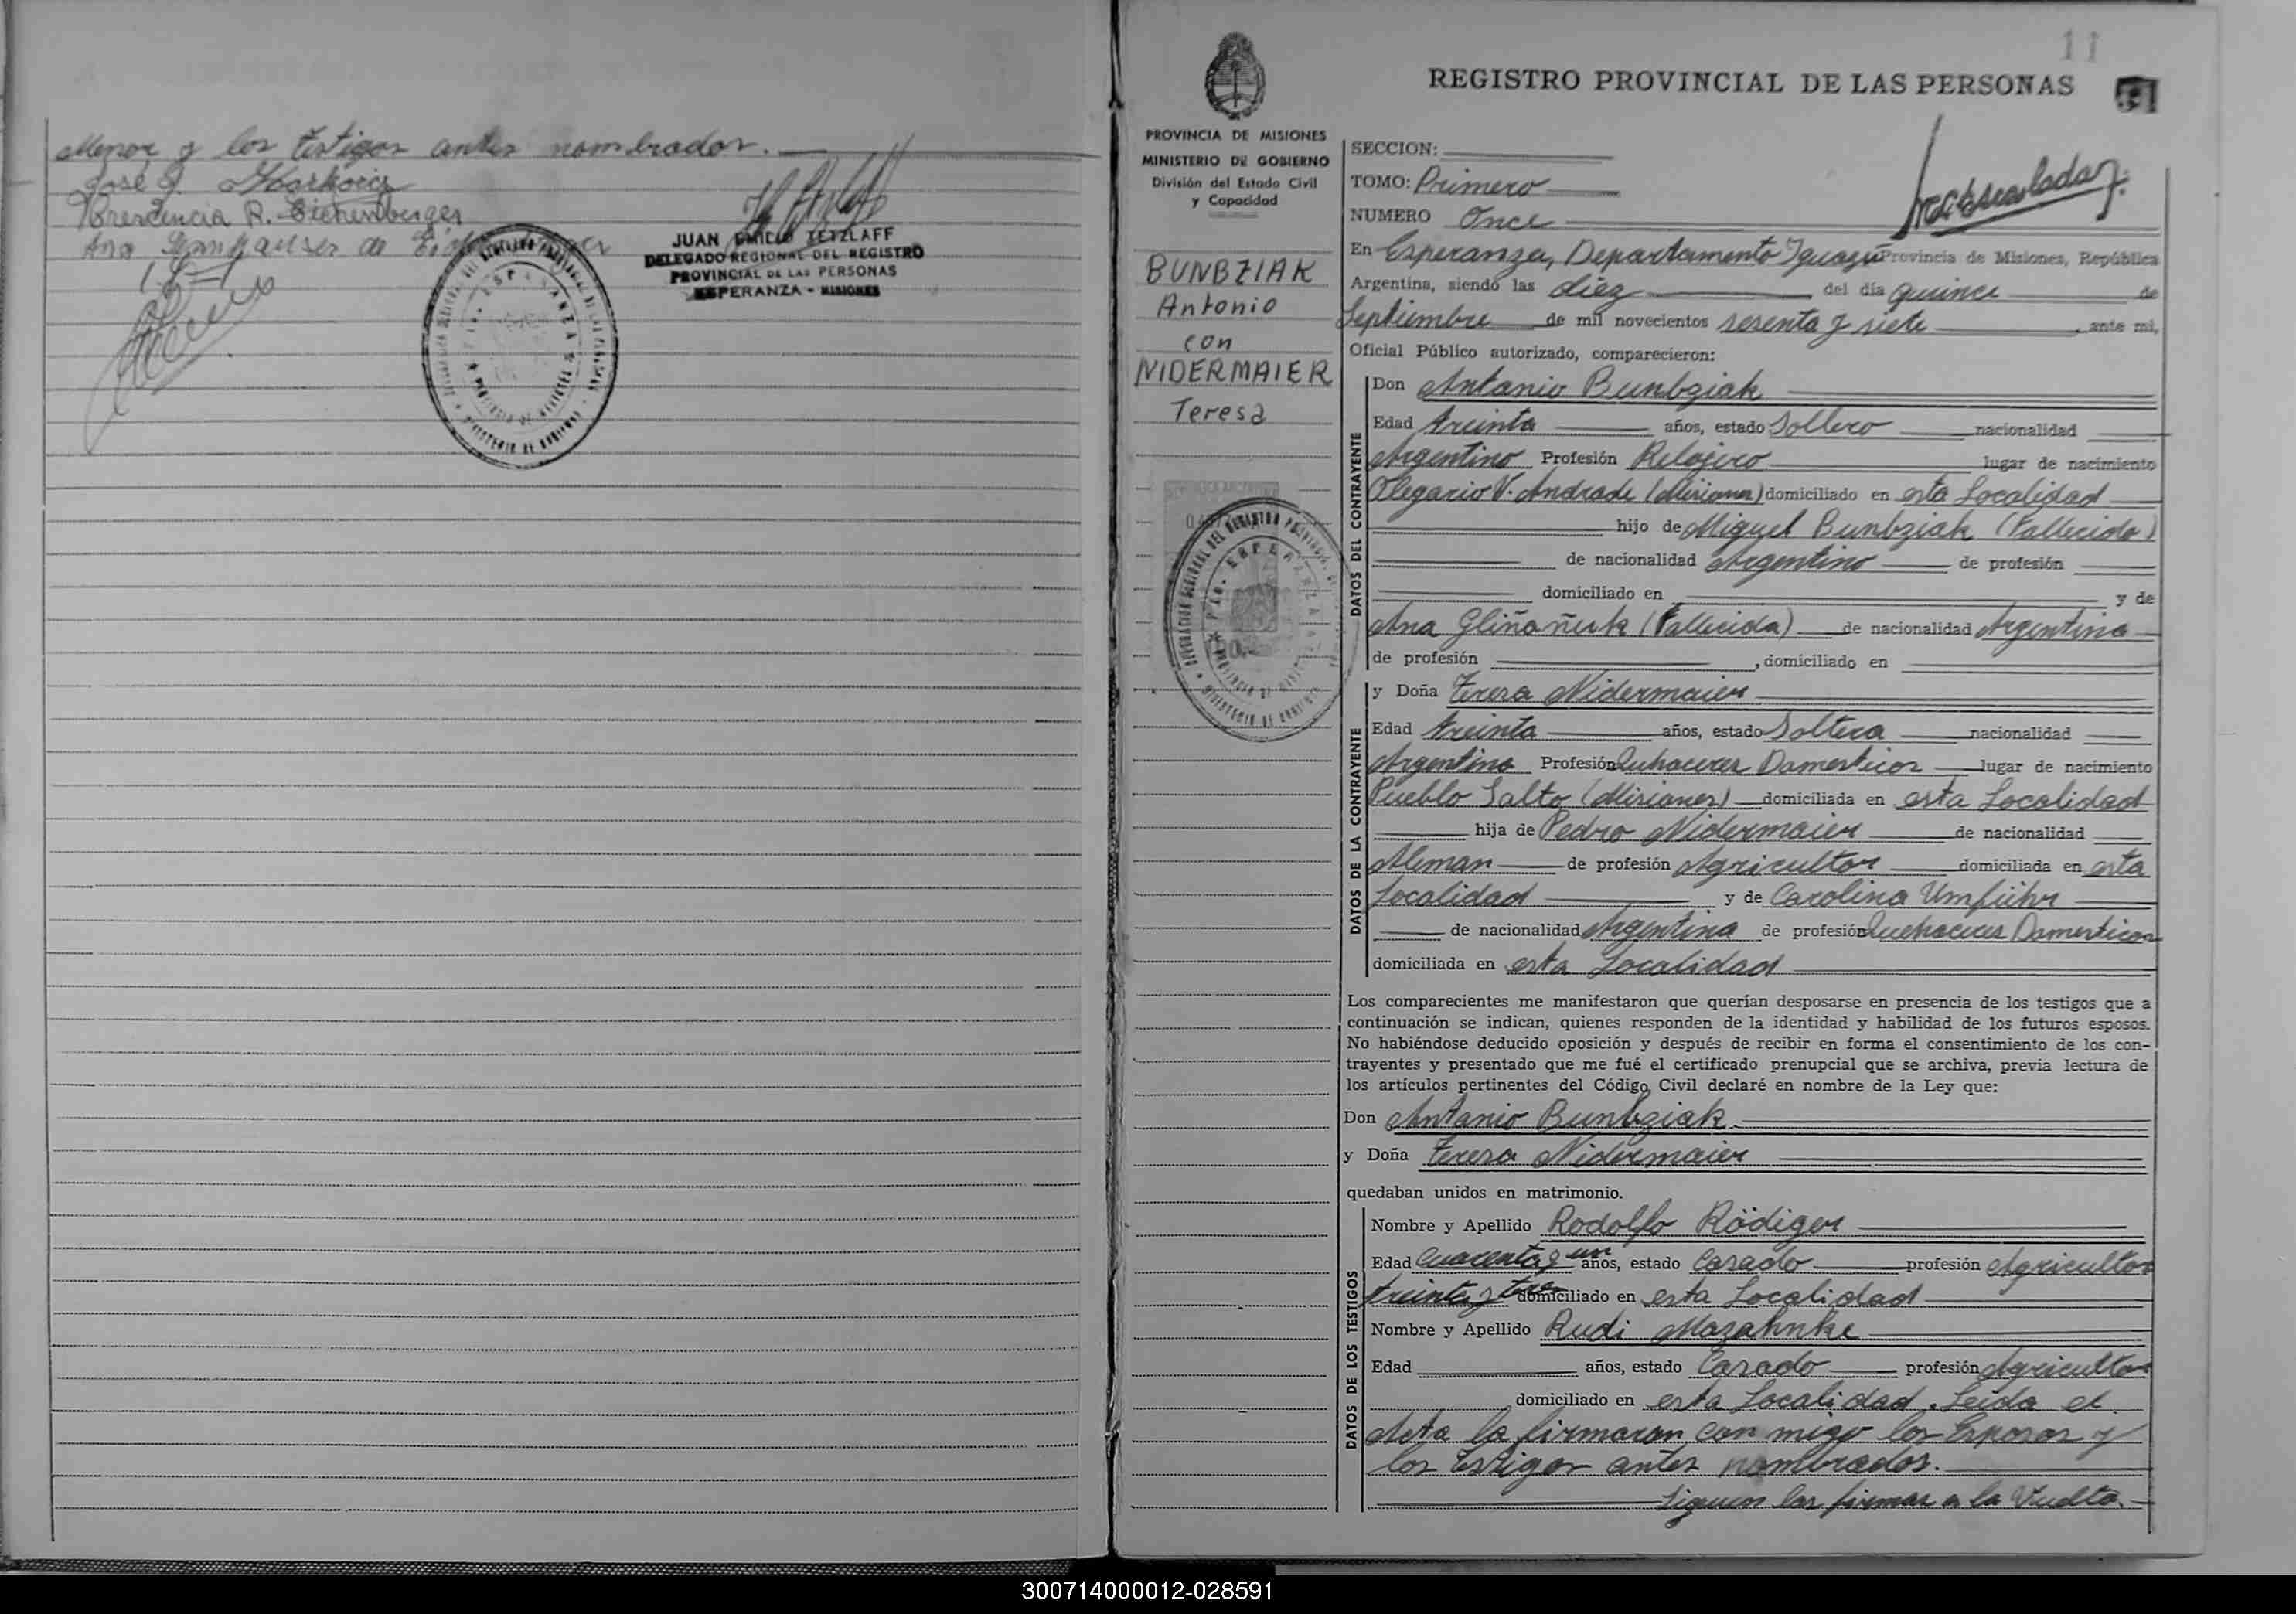 Menor y los testigos antes nombrados.
José
Crescencia R. Eichenberger
Ana de
JUAN EMILIO TETZLAFF
DELEGADO REGIONAL DEL REGISTRO
PROVINCIAL DE LAS PERSONAS
ESPERANZA - MISIONES
11
REGISTRO PROVINCIAL DE LAS PERSONAS
PROVINCIA DE MISIONES
MINISTERIO DE GOBIERNO
División del Estado Civil
y Capacidad
BUNBZIAK
Antonio
con
NIDERMAIER
Teresa
SECCION:
TOMO: Primero
NUMERO Once
En Esperanza, Departamento Iguazú Provincia de Misiones, República
Argentina, siendo las diez del día quince de
Septiembre de mil novecientos sesenta y siete, ante mi,
Oficial Público autorizado, comparecieron:
DATOS DEL CONTRAYENTE
Don Antonio Bunbziak
Edad treinta años, estado Soltero nacionalidad
Argentino Profesión Relojero lugar de nacimiento
Olegario V. Andrade (Misiones) domiciliado en esta Localidad
hijo de Miguel Bunbziak (Fallecido)
de nacionalidad Argentino de profesión
domiciliado en y de
Ana Gliñañuk (Fallecida) de nacionalidad Argentina
de profesión , domiciliado en
DATOS DE LA CONTRAYENTE
y Doña Teresa Nidermaier
Edad treinta años, estado Soltera nacionalidad
Argentina Profesión Quhaceres Domesticos lugar de nacimiento
Pueblo Salto (Misiones) domiciliada en esta Localidad
hija de Pedro Nidermaier de nacionalidad
Aleman de profesión Agricultor domiciliada en esta
Localidad y de Carolina Umführ
de nacionalidad Argentina de profesión Quehaceres Domesticos
domiciliada en esta Localidad
Los comparecientes me manifestaron que querían desposarse en presencia de los testigos que a
continuación se indican, quienes responden de la identidad y habilidad de los futuros esposos.
No habiéndose deducido oposición y después de recibir en forma el consentimiento de los con-
trayentes y presentado que me fué el certificado prenupcial que se archiva, previa lectura de
los artículos pertinentes del Código Civil declaré en nombre de la Ley que:
Don Antonio Bunbziak
y Doña Teresa Nidermaier
quedaban unidos en matrimonio.
DATOS DE LOS TESTIGOS
Nombre y Apellido Rodolfo Rödiger
Edad Cuarenta y un años, estado Casado profesión Agricultor
treinta y tres domiciliado en esta Localidad
Nombre y Apellido Rudi Mozahnke
Edad años, estado Casado profesión Agricultor
domiciliado en esta Localidad. Leida el
Acta la firmaron con migo los Esposos y
los testigos antes nombrados.
Siguen las firmas a la Vuelta.
300714000012-028591